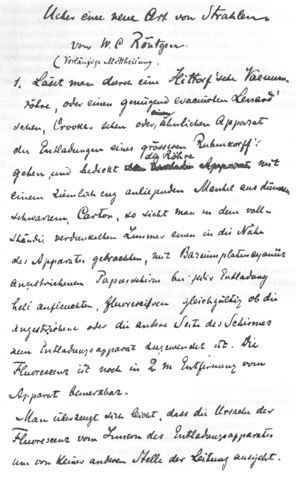 Ueber eine neue Art von Strahlen.
von W. C. Röntgen.
(Vorläufige Mittheilung.
1. Lässt man durch eine Hittorf'sche Vacuum-
röhre, oder einen genügend evacuirten Lenard'
schen, Crookes'schen oder einen ähnlichen Apparat
die Entladungen eines grösseren Ruhmkorff's
gehen und bedeckt die Röhre mit
einem ziemlich eng anliegenden Mantel aus dünnem
schwarzem, Carton, so sieht man in dem voll-
ständig verdunkelten Zimmer einen in die Nähe
des Apparates gebrachten, mit Bariumplatincyanür
angestrichenen Papierschirm bei jeder Entladung
hell aufleuchten, fluoresciren gleichgültig ob die
angestrichene oder die andere Seite des Schirmes
dem Entladungsapparat zugewendet ist. Die
Fluorescenz ist noch in 2 m Entfernung vom
Apparat bemerkbar.
Man überzeugt sich leicht, dass die Ursache der
Fluorescenz vom Innern des Entladungsapparates
und von keiner anderen Stelle der Leitung ausgeht.